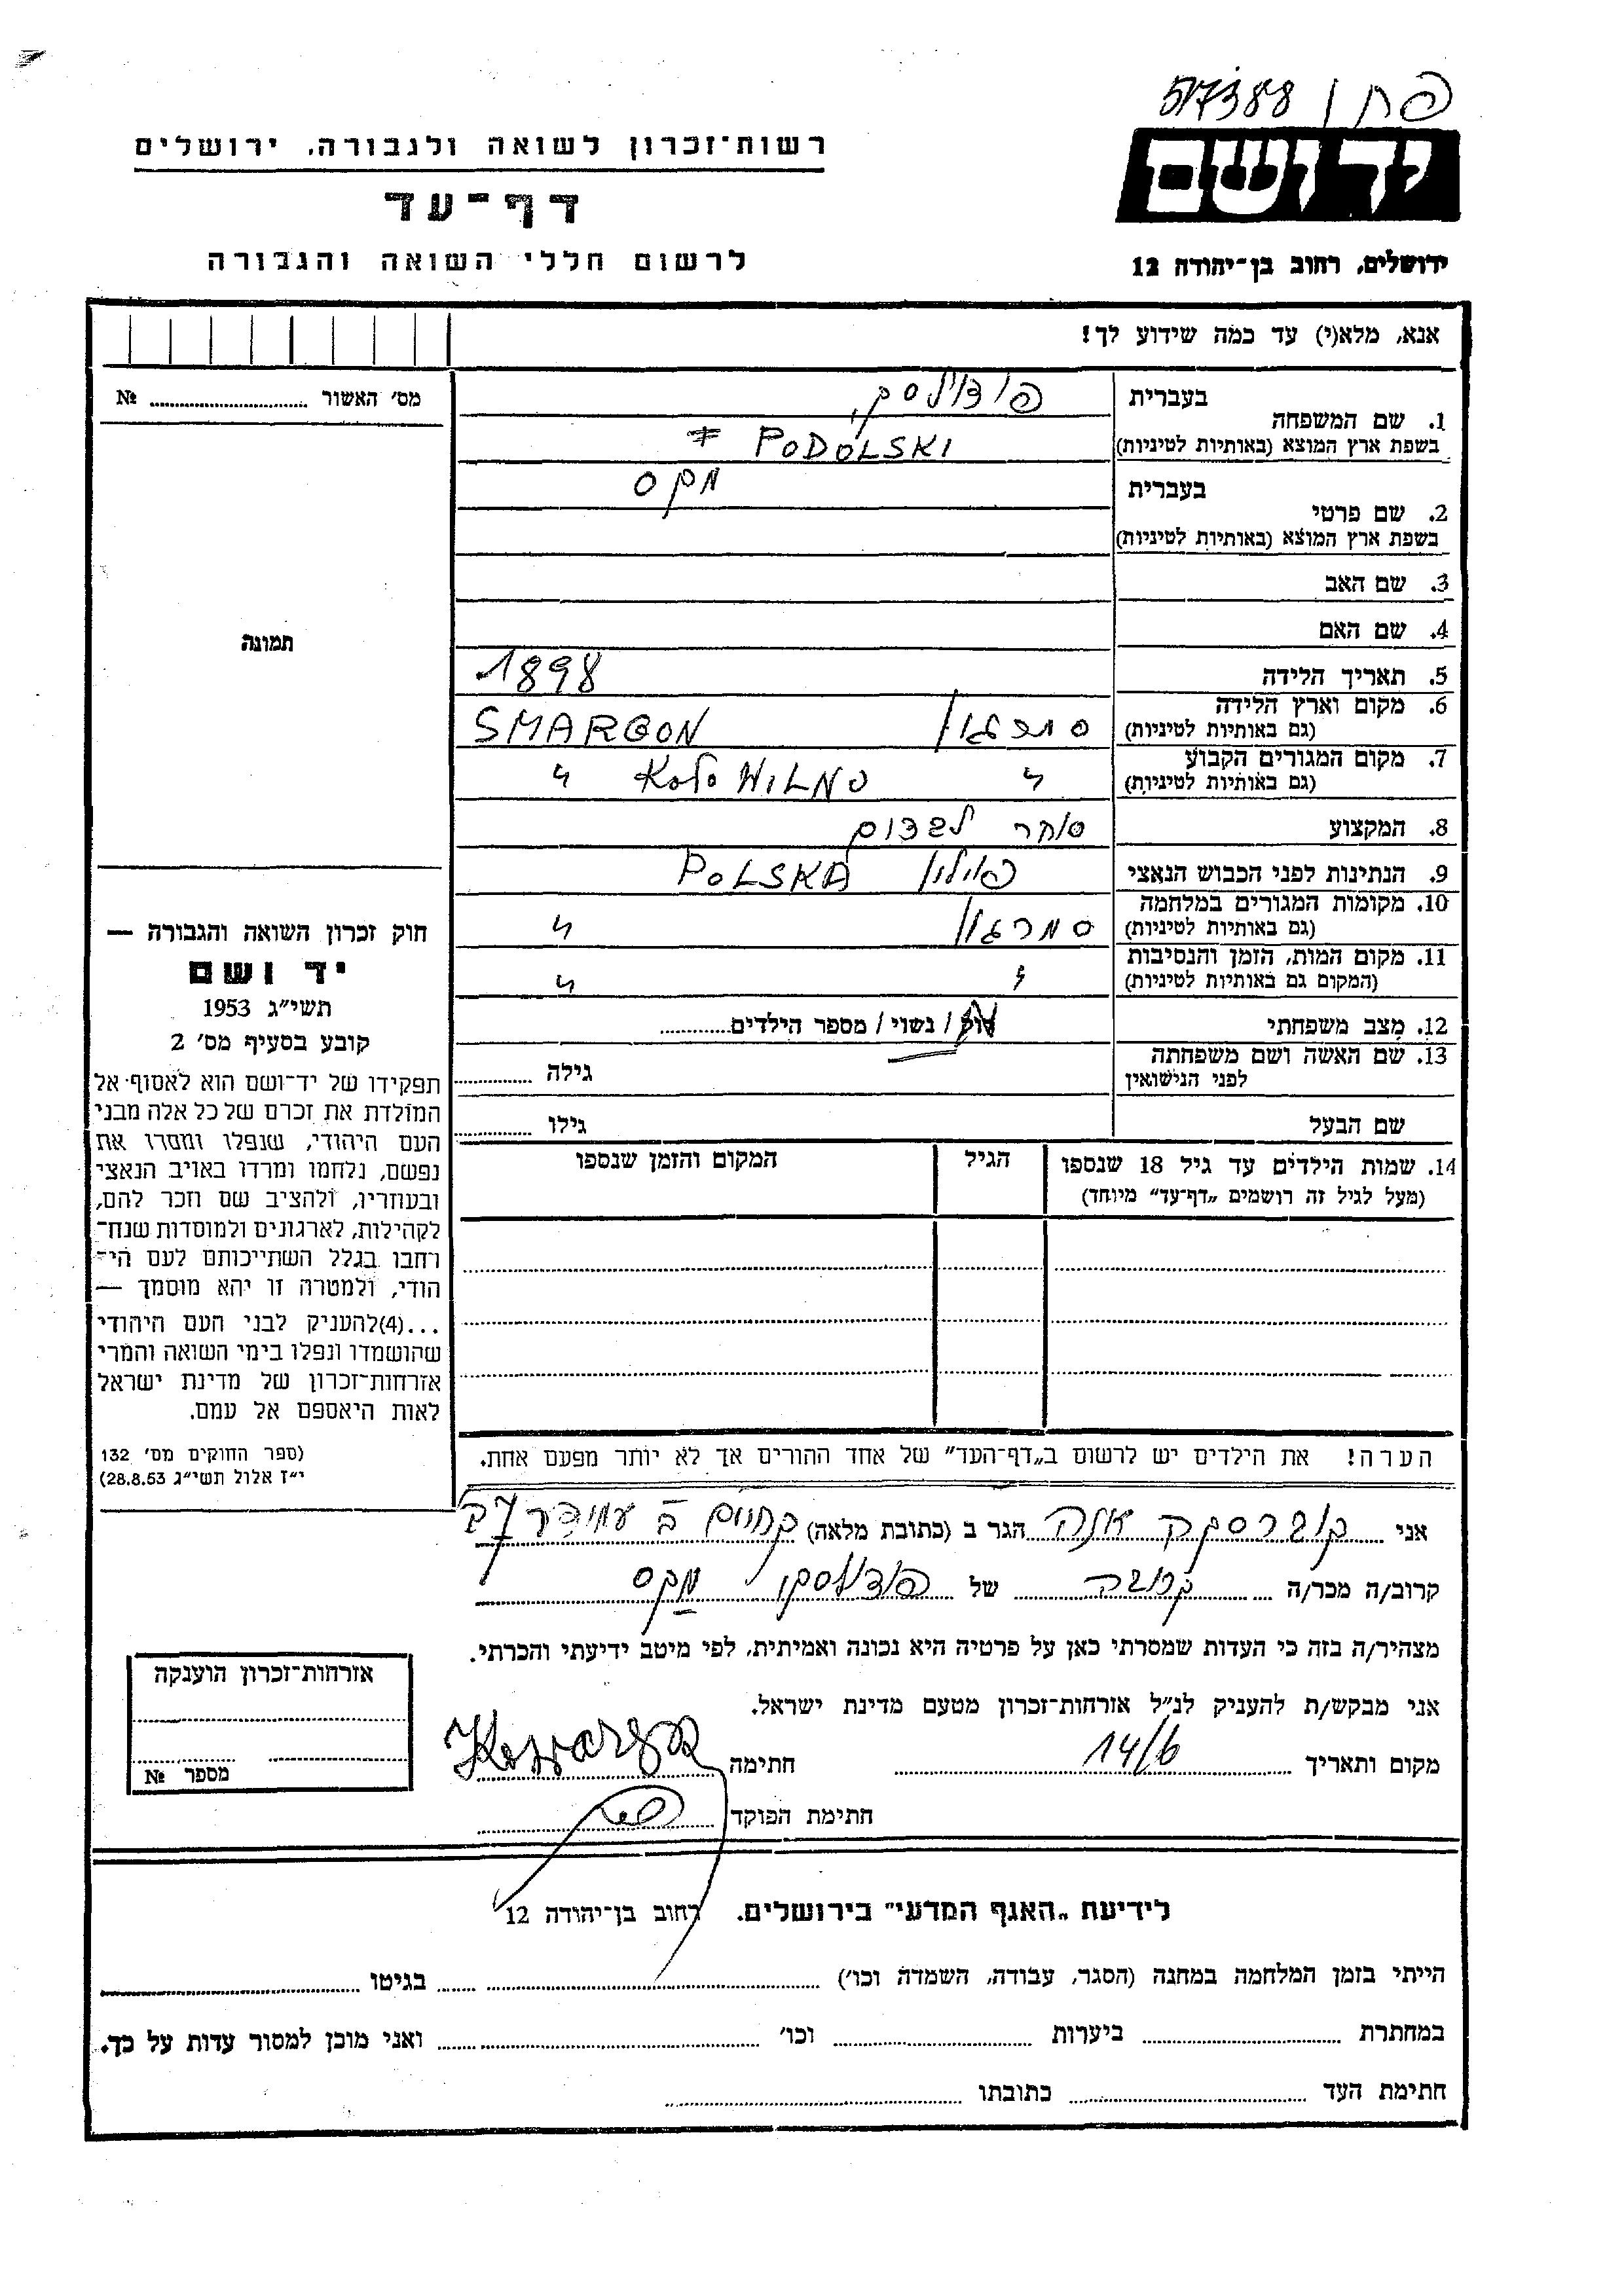 517388
יד ושם
ירושלים, רחוב בן-יהודה 12
רשות-זכרון לשואה ולגבורה, ירושלים
דף-עד
לרשום חללי השואה והגבורה
אנא, מלא(י) עד כמה שידוע לך!
מס' האשור № ..........
תמונה
בעברית פודולסקי
1. שם המשפחה
בשפת ארץ המוצא (באותיות לטיניות) PODOLSKI
בעברית מקס
2. שם פרטי
בשפת ארץ המוצא (באותיות לטיניות)
3. שם האב
4. שם האם
5. תאריך הלידה 1898
6. מקום וארץ הלידה סמרגון SMARGON
(גם באותיות לטיניות)
7. מקום המגורים הקבוע " KOŁO WILNO "
(גם באותיות לטיניות)
8. המקצוע סוחר
9. הנתינות לפני הכבוש הנאצי פולין POLSKA
10. מקומות המגורים במלחמה סמרגון "
(גם באותיות לטיניות)
11. מקום המות, הזמן והנסיבות " "
(המקום גם באותיות לטיניות)
12. מצב משפחתי רווק / נשוי / מספר הילדים..........
13. שם האשה ושם משפחתה
לפני הנישואין גילה ..........
שם הבעל גילו ..........
14. שמות הילדים עד גיל 18 שנספו הגיל המקום והזמן שנספו
(מעל לגיל זה רושמים „דף-עד" מיוחד)
הערה! את הילדים יש לרשום ב„דף-העד" של אחד ההורים אך לא יותר מפעם אחת.
חוק זכרון השואה והגבורה —
יד ושם
תשי"ג 1953
קובע בסעיף מס' 2
תפקידו של יד-ושם הוא לאסוף אל
המולדת את זכרם של כל אלה מבני
העם היהודי, שנפלו ומסרו את
נפשם, נלחמו ומרדו באויב הנאצי
ובעוזריו, ולהציב שם וזכר להם,
לקהילות, לארגונים ולמוסדות שנח-
רחבו בגלל השתייכותם לעם הי-
הודי, ולמטרה זו יהא מוסמך —
...(4)להעניק לבני העם היהודי
שהושמדו ונפלו בימי השואה והמרי
אזרחות-זכרון של מדינת ישראל
לאות היאספם אל עמם.
(ספר החוקים מס' 132
י"ז אלול תשי"ג 28.8.53)
אני הגר ב (כתובת מלאה)
קרוב/ה מכר/ה קרובה של פודולסקי מקס
מצהיר/ה בזה כי העדות שמסרתי כאן על פרטיה היא נכונה ואמיתית, לפי מיטב ידיעתי והכרתי.
אני מבקש/ת להעניק לנ"ל אזרחות-זכרון מטעם מדינת ישראל.
מקום ותאריך 14/6 חתימה
חתימת הפוקד
אזרחות-זכרון הוענקה
מספר №
לידיעת „האגף המדעי" בירושלים, רחוב בן-יהודה 12
הייתי בזמן המלחמה במחנה (הסגר, עבודה, השמדה וכו') .......... בגיטו ..........
במחתרת .......... ביערות .......... וכו' .......... ואני מוכן למסור עדות על כך.
חתימת העד .......... כתובתו ..........